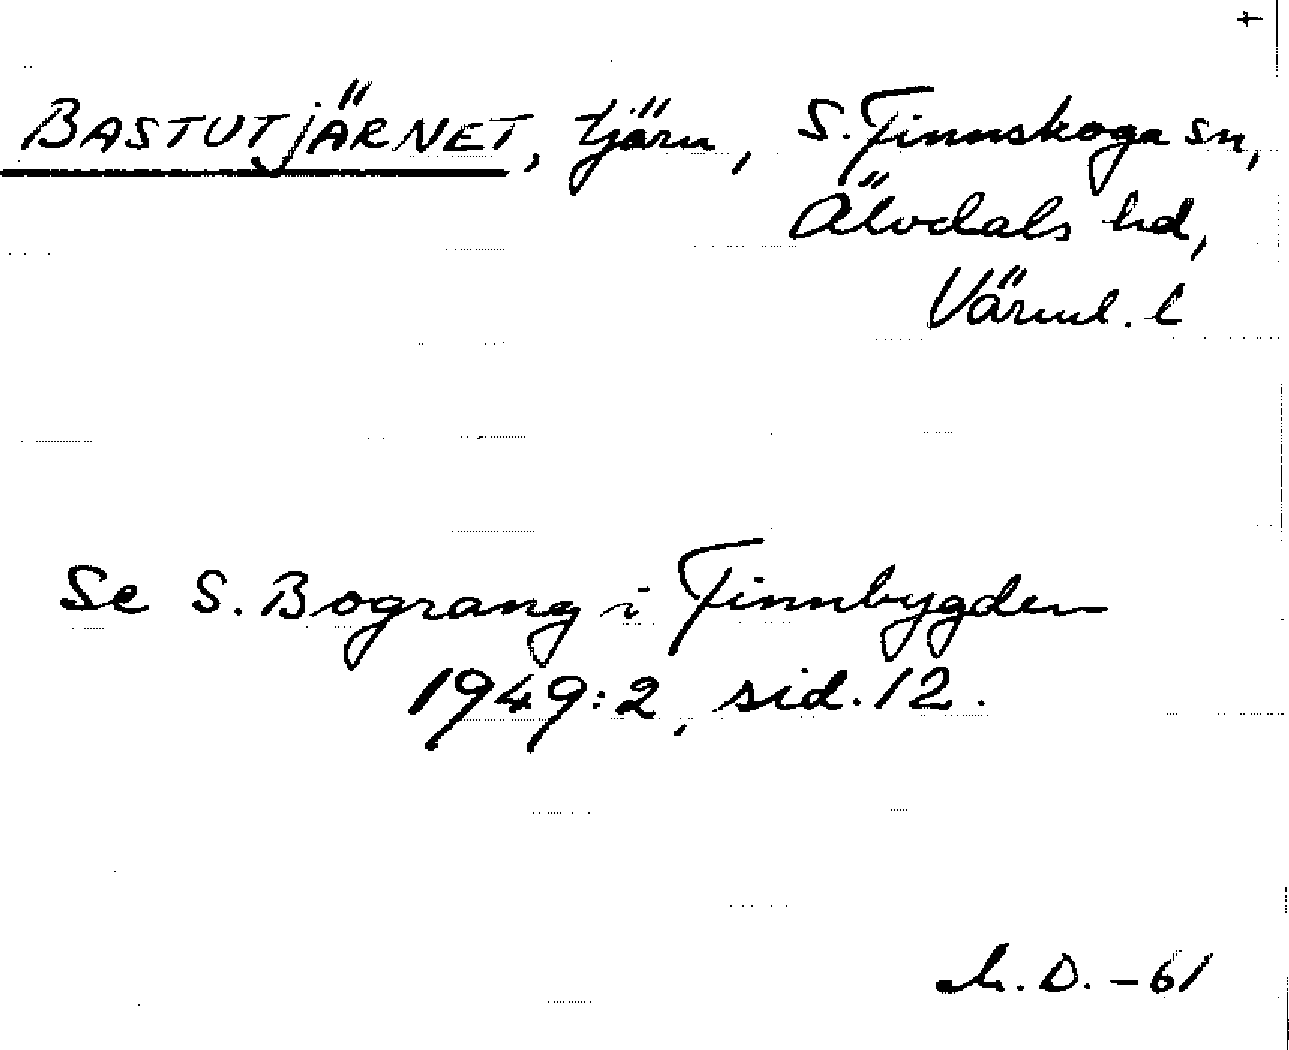 BASTUTJÄRNET, tjärn, S. Finnskoga sn,
Älvdals hd,
Värml. l
Se S. Bograng i Finnbygden
1949:2, sid. 12.
D. - 61